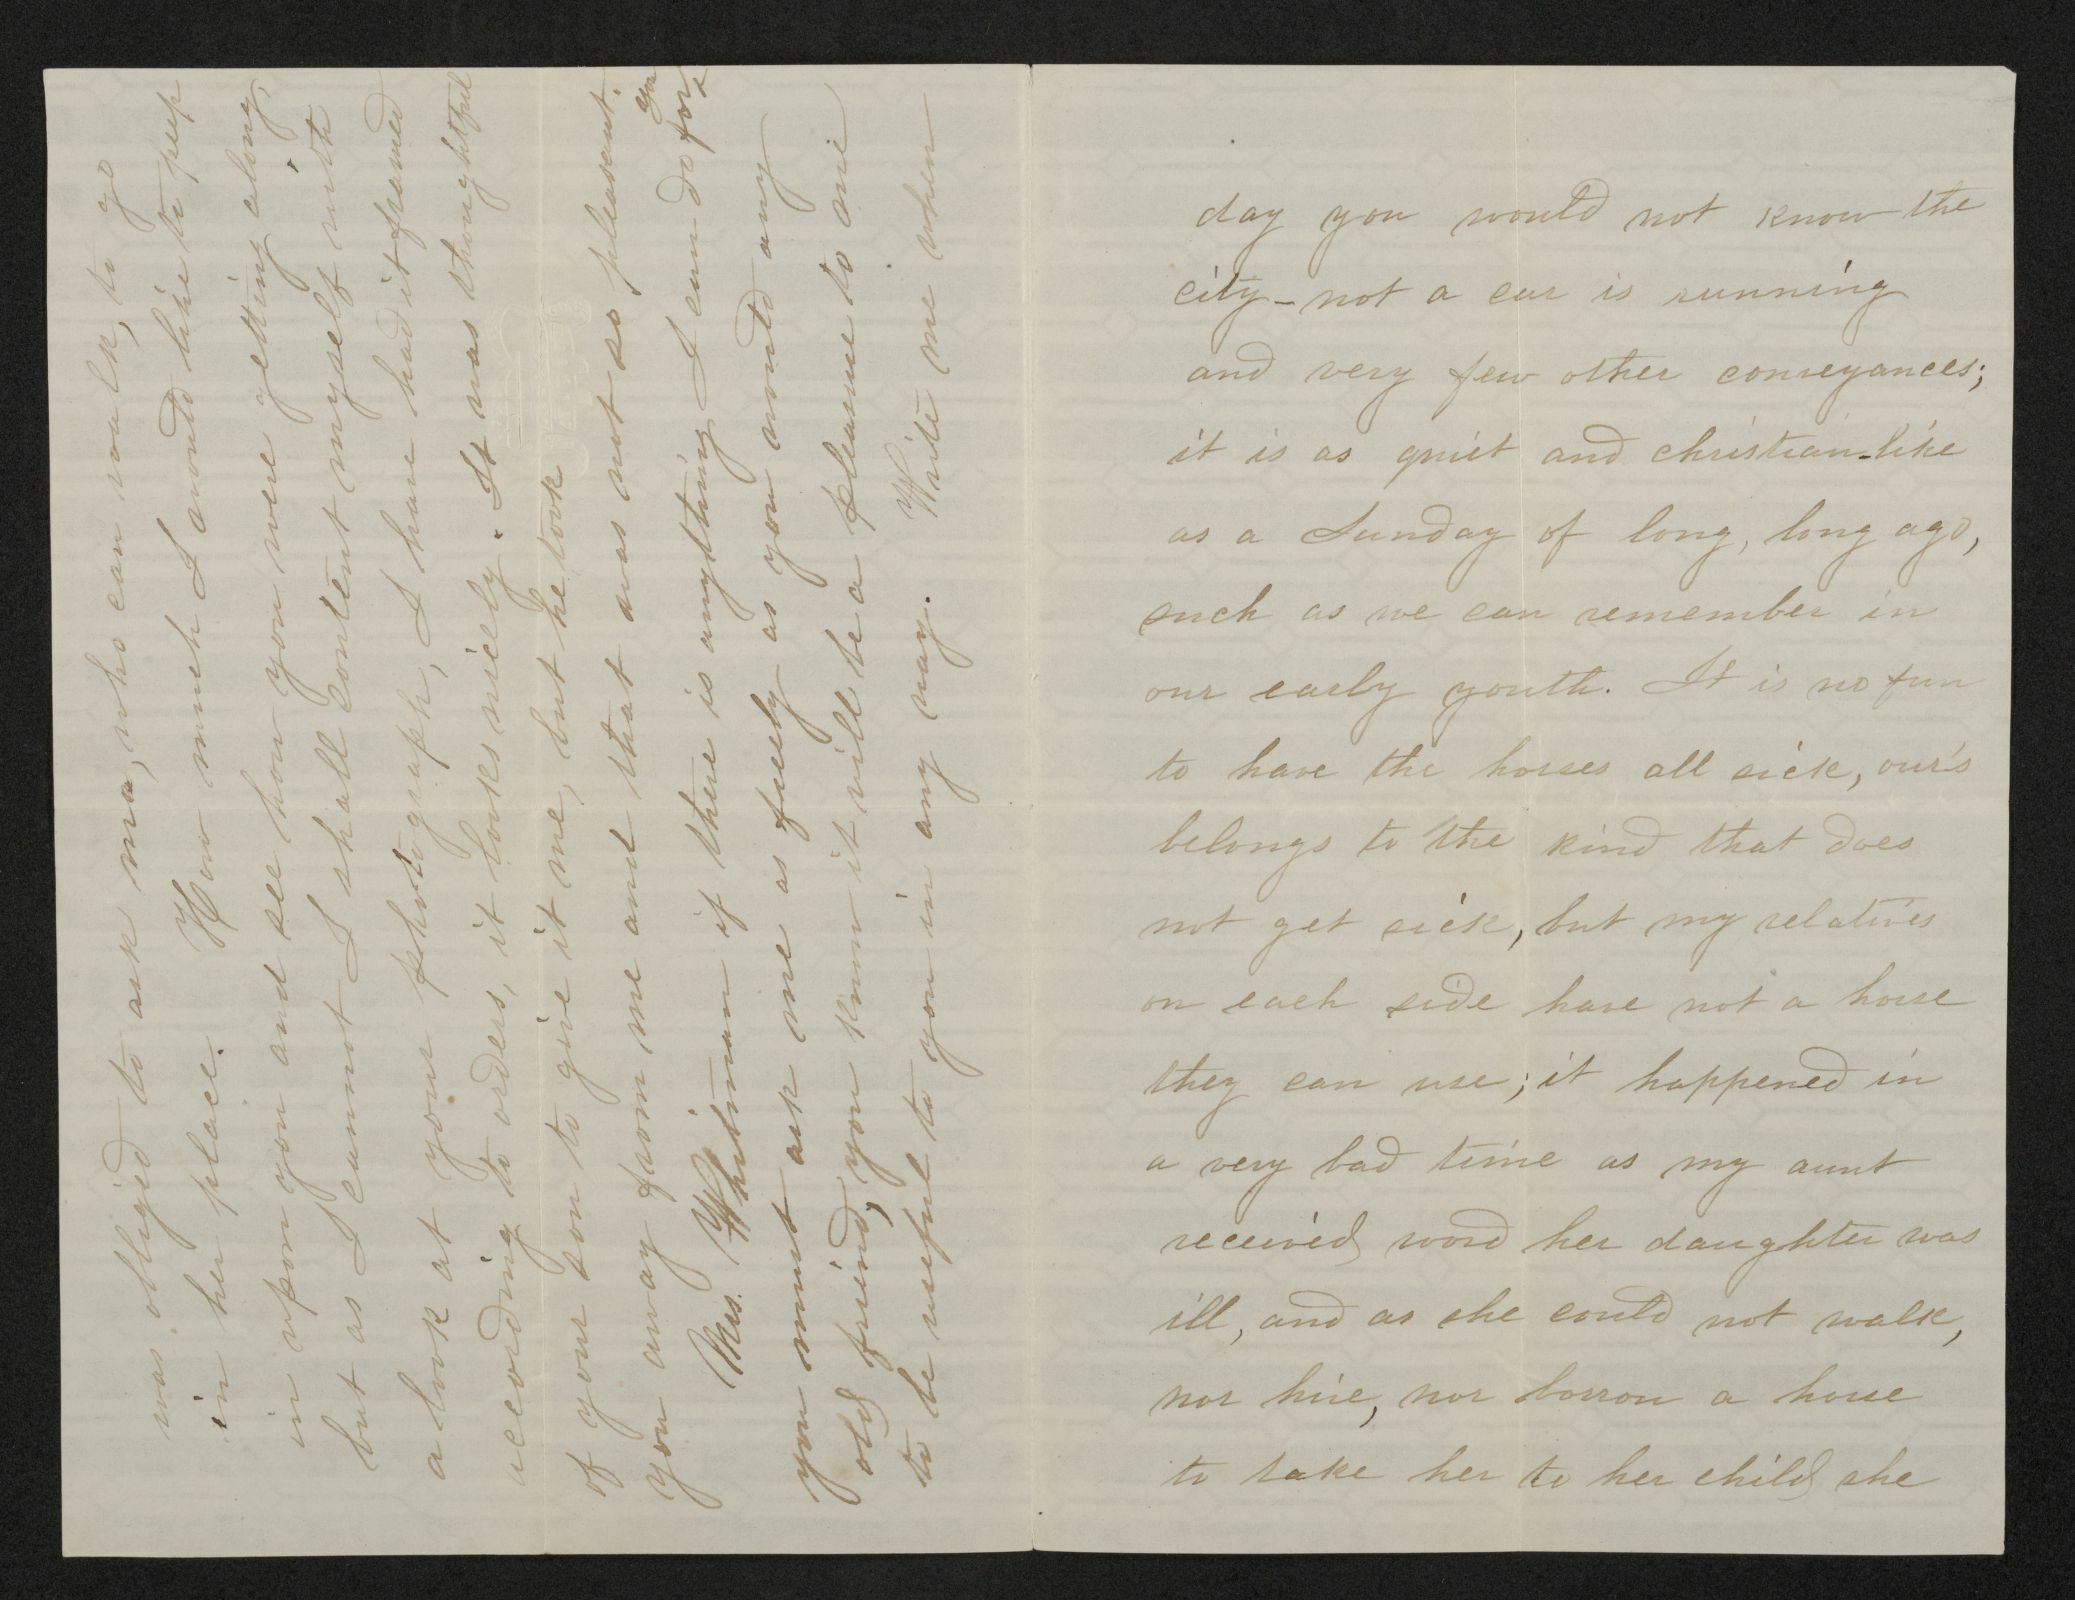 day you would not know the
city - not a car is running
and very few other conveyances;
it is as quiet and christian-like
as a Sunday of long, long ago,
such as we can remember in
our early youth. It is no fun
to have the horses all sick, our's
belongs to the kind that does
not get sick, but my relatives
on each side have not a horse
they can use; it happened in
a very bad time as my aunt
received word her daughter was
ill, and as she could not walk,
nor hire, nor borrow a horse
to take her to her child she
was obliged to ask ma, who can walk, to go
in her place. How much I would like to peep
in upon you and see how you were getting along,
but as I cannot I shall content myself with
a look at your photograph, I have had it framed
according to orders, it looks nicely. It was thoughtful
of your son to give it me, but he took
you away from me and that was not so pleasant.
Mrs. Whitman if there is anything I can do for you
you must ask me as freely as you would any
old friend, you know it will be a pleasure to me
to be useful to you in any way. Write me when